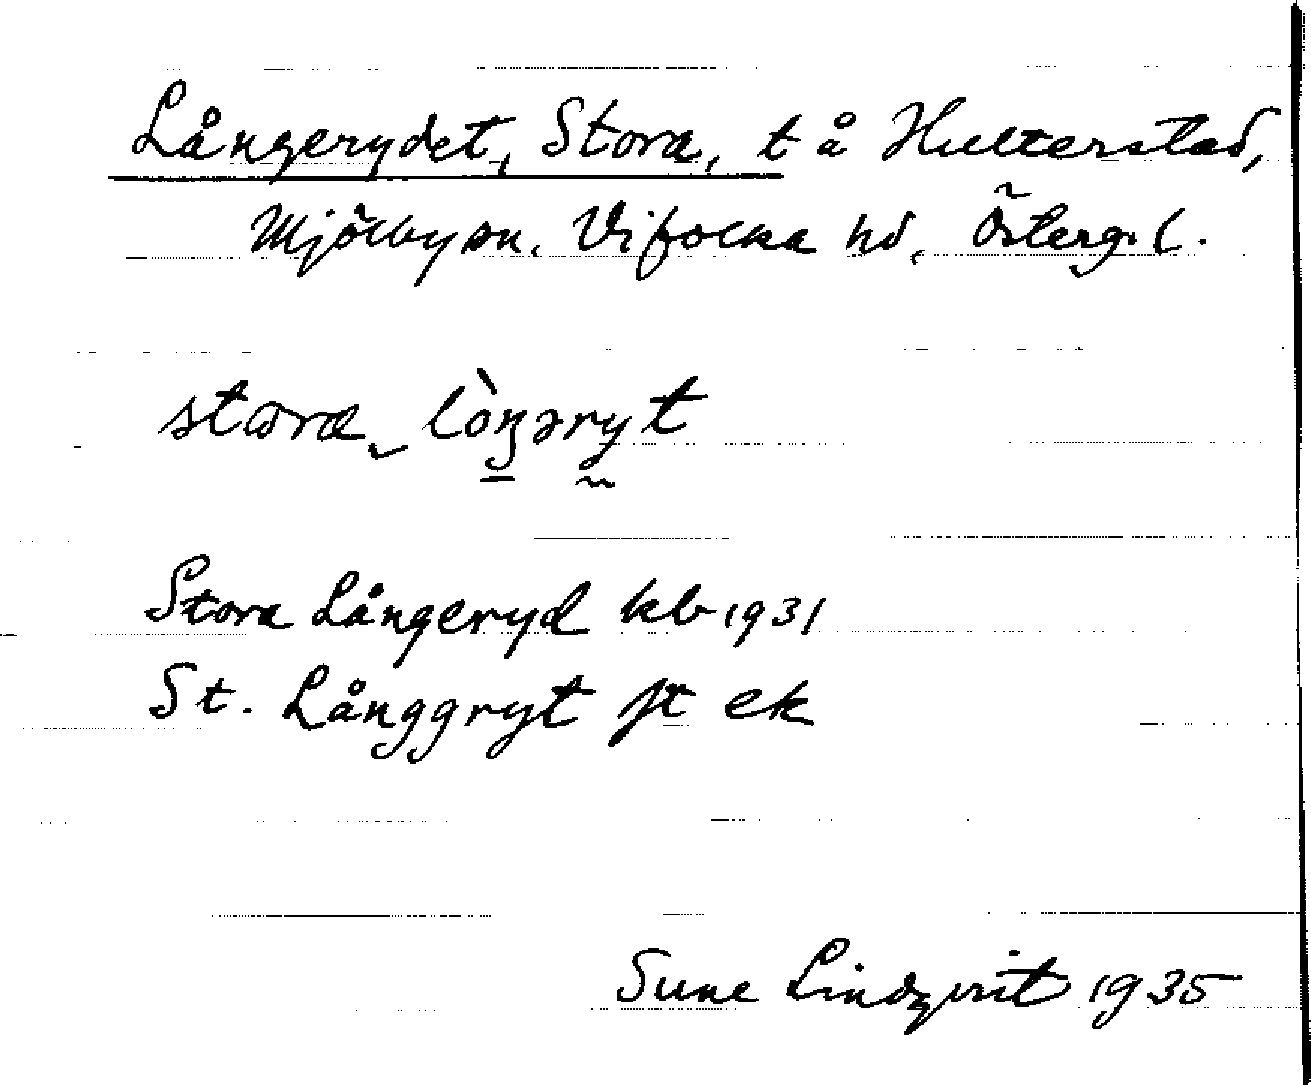 Långerydet, Stora, t å Hulterstad,
Mjölby sn. Vifolka hd, Österg. l.
stora löŋəryt
Stora Långeryd kb 1931
St. Långgryt jt ek
Sune Lindqvist 1935